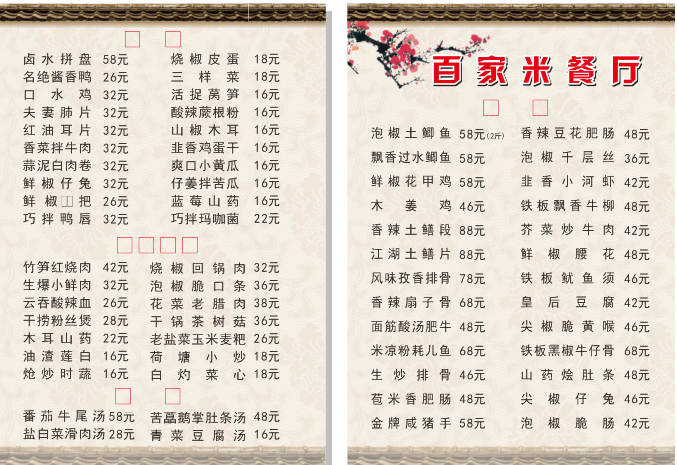 卤水拼盘 58元 烧椒皮蛋 18元
名绝酱香鸭 26元 三样菜 18元
口水鸡 32元 活捉莴笋 16元
夫妻肺片 32元 酸辣蕨根粉 16元
红油耳片 32元 山椒木耳 16元
香菜拌牛肉 32元 韭香鸡蛋干 16元
蒜泥白肉卷 32元 爽口小黄瓜 16元
鲜椒仔兔 32元 仔姜拌苦瓜 16元
鲜椒把 26元 蓝莓山药 16元
巧拌鸭唇 32元 巧拌玛咖菌 22元
竹笋红烧肉 42元 烧椒回锅肉 32元
生爆小鲜肉 32元 泡椒脆口条 36元
云吞酸辣血 26元 花菜老腊肉 38元
干捞粉丝煲 28元 干锅茶树菇 36元
木耳山药 22元 老盐菜玉米麦粑 26元
油渣莲白 16元 荷塘小炒 18元
炝炒时蔬 16元 白灼菜心 18元
番茄牛尾汤 58元 苦藠鹅掌肚条汤 48元
盐白菜滑肉汤 28元 青菜豆腐汤 16元
百家米餐厅
泡椒土鲫鱼 58元(2斤) 香辣豆花肥肠 48元
飘香过水鲫鱼 58元 泡椒千层丝 36元
鲜椒花甲鸡 58元 韭香小河虾 42元
木姜鸡 46元 铁板飘香牛柳 48元
香辣土鳝段 88元 芥菜炒牛肉 42元
江湖土鳝片 88元 鲜椒腰花 48元
风味孜香排骨 78元 铁板鱿鱼须 46元
香辣扇子骨 68元 皇后豆腐 42元
面筋酸汤肥牛 48元 尖椒脆黄喉 46元
米凉粉耗儿鱼 68元 铁板黑椒牛仔骨 68元
生炒排骨 46元 山药烩肚条 48元
苞米香肥肠 48元 尖椒仔兔 46元
金牌咸猪手 58元 泡椒脆肠 42元